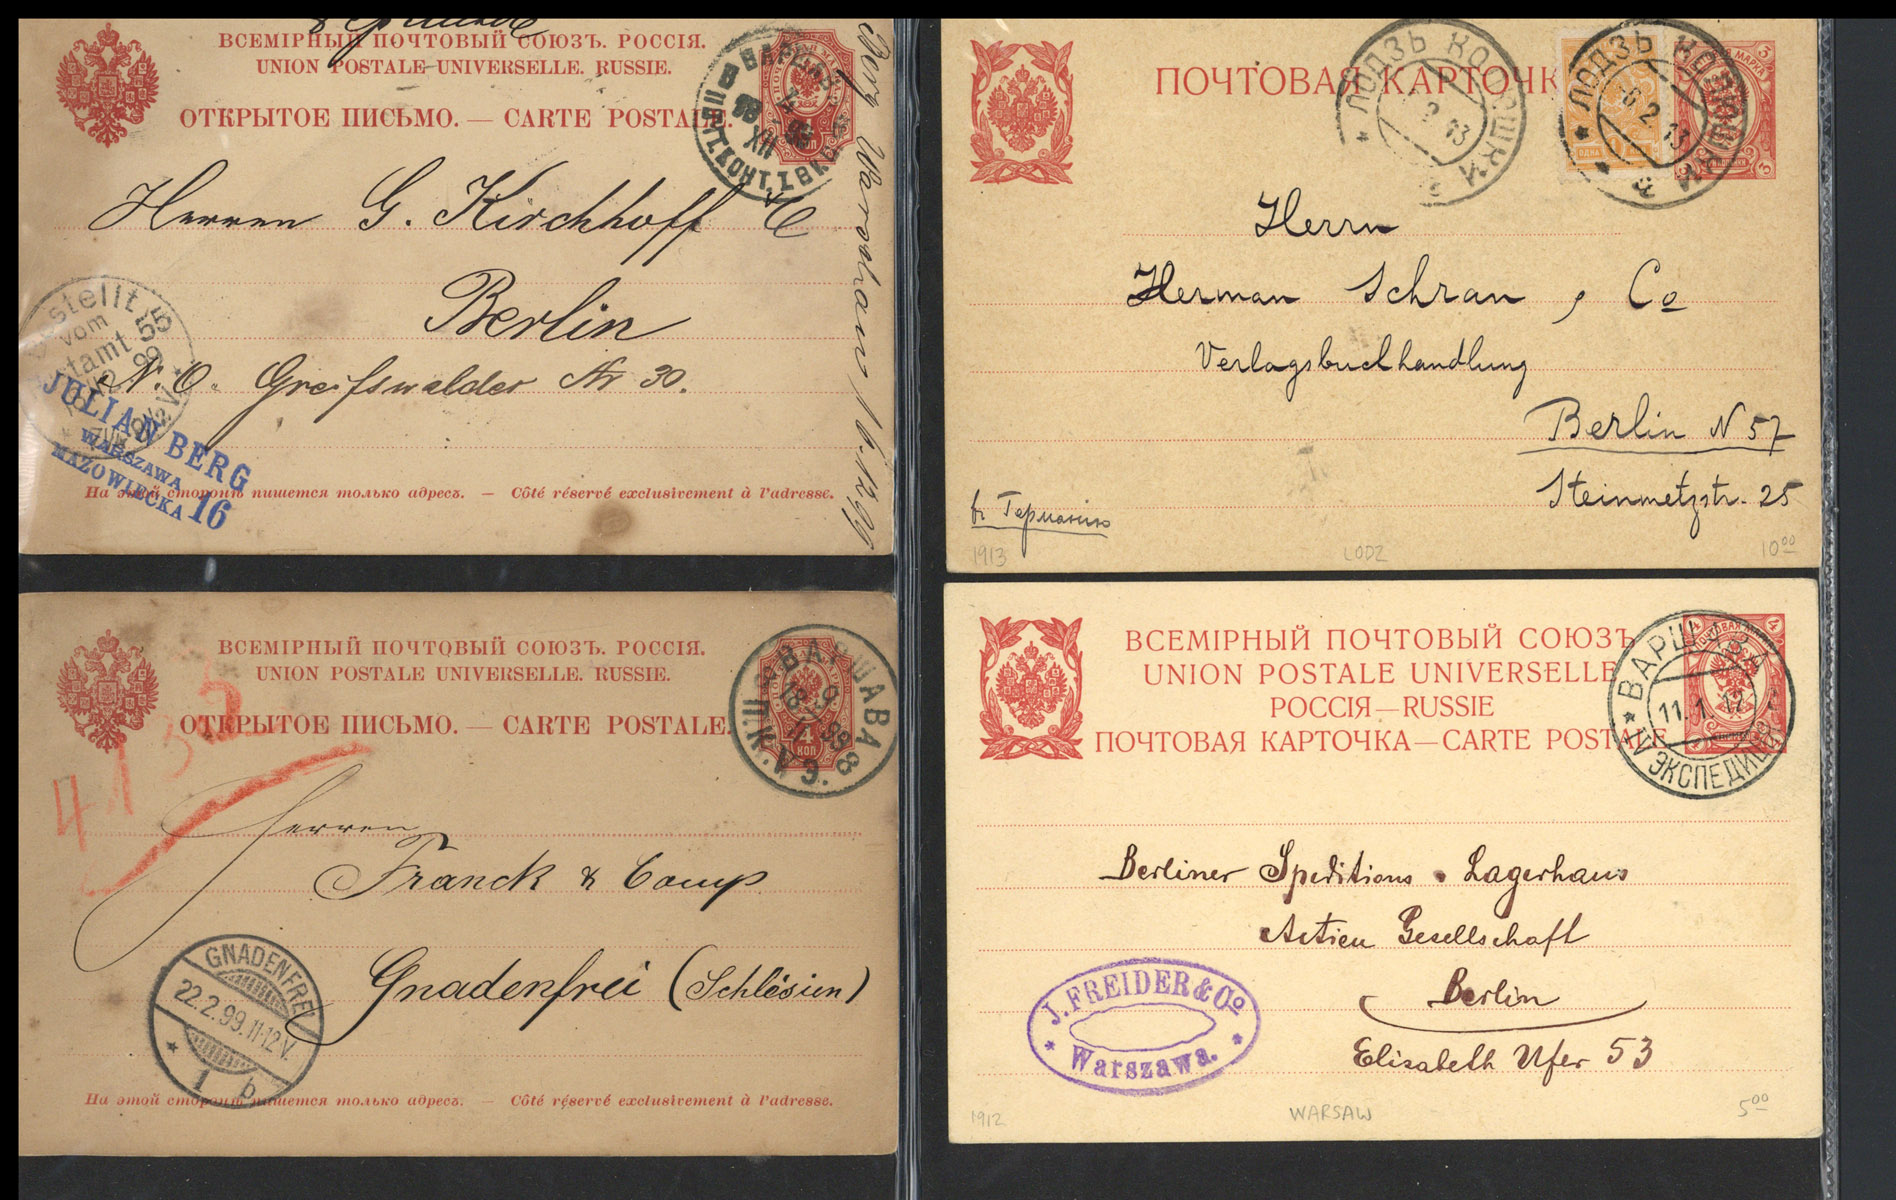 ВСЕМІРНЫЙ ПОЧТОВЫЙ СОЮЗЪ. РОССІЯ.
UNION POSTALE UNIVERSELLE. RUSSIE.
ОТКРЫТОЕ ПИСЬМО. — CARTE POSTALE.
Herren G. Kirchhoff
Berlin
N. O. Greifswalder Nr 30.
Bestellt
vom
55
JULIAN BERG
WARSZAWA
MAZOWIECKA 16
На этой сторонѣ пишется только адресъ. — Côté réservé exclusivement à l'adresse.
Warschau
ПОЧТОВАЯ КАРТОЧК
ЛОДЗЬ
ЛОДЗЬ
2 13
2 13
Herrn
Herman Schran, Co
Verlagsbuchhandlung
Berlin N 57
Steinmetzstr. 25
въ Германію
1913
LODZ
10 00
ВСЕМІРНЫЙ ПОЧТОВЫЙ СОЮЗЪ. РОССІЯ.
UNION POSTALE UNIVERSELLE. RUSSIE.
ОТКРЫТОЕ ПИСЬМО. — CARTE POSTALE.
ВАРШАВА 8
4 КОП
Herren
Franck & Comp
Gnadenfrei (Schlesien)
GNADENFREI
22.2.99.11-12V.
1 b
На этой сторонѣ пишется только адресъ. — Côté réservé exclusivement à l'adresse.
ВСЕМІРНЫЙ ПОЧТОВЫЙ СОЮЗЪ
UNION POSTALE UNIVERSELLE
РОССІЯ—RUSSIE
ПОЧТОВАЯ КАРТОЧКА—CARTE POSTALE
ВАРШАВА
11.1.12
IV ЭКСПЕДИЦ
Berliner Speditions - Lagerhaus
Actien Gesellschaft
Berlin
Elisabeth Ufer 53
J. FREIDER & Co.
Warszawa.
1912
WARSAW
5 00